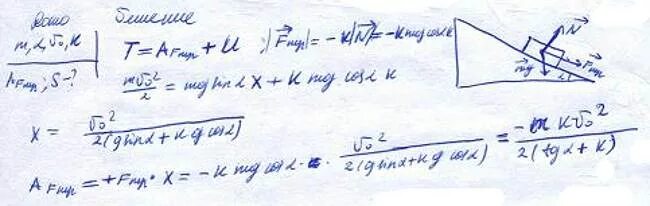 Дано
m, α, v₀, к
A_Fтр; S-?
Решение
T = A_Fтр + U ; |F⃗тр| = -к|N⃗| = -к mg cosα
mv₀²/2 = mg sinα x + к mg cosα к
x = v₀²/2(g sinα + к g cosα)
A_Fтр = +Fтр · x = -к mg cosα · v₀²/2(g sinα + к g cosα) = -m к v₀²/2(tgα + к)
N⃗
F⃗тр
m⃗g
α